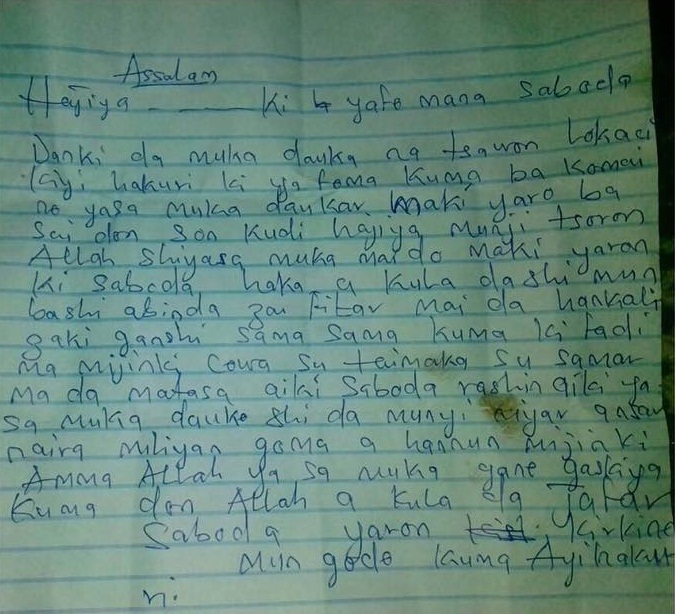 Assalam
Hajiya ki yafe mana saboda
Danki da muka dauka na tsawon lokaci
kiyi hakuri ki yafema kuma ba komai
ne yasa muka daukar maki yaro ba
sai don son kudi hajiya munji tsoron
Allah shiyasa muka maido maki yaran
ki saboda haka a kula dashi mun
bashi abinda zai fitar mai da hankali
gaki ganshi sama sama kuma ki fadi
ma mijinki cewa su taimaka su samar
ma da matasa aiki saboda rashin aiki ya
sa muka dauke shi da munyi niyar ansar
naira miliyan goma a hannun mijinki
Amma Allah ya sa muka gane gaskiya
kuma don Allah a kula da Jafar
saboda yaron kirkine
mun gode kuma Ayi hakur
ri.